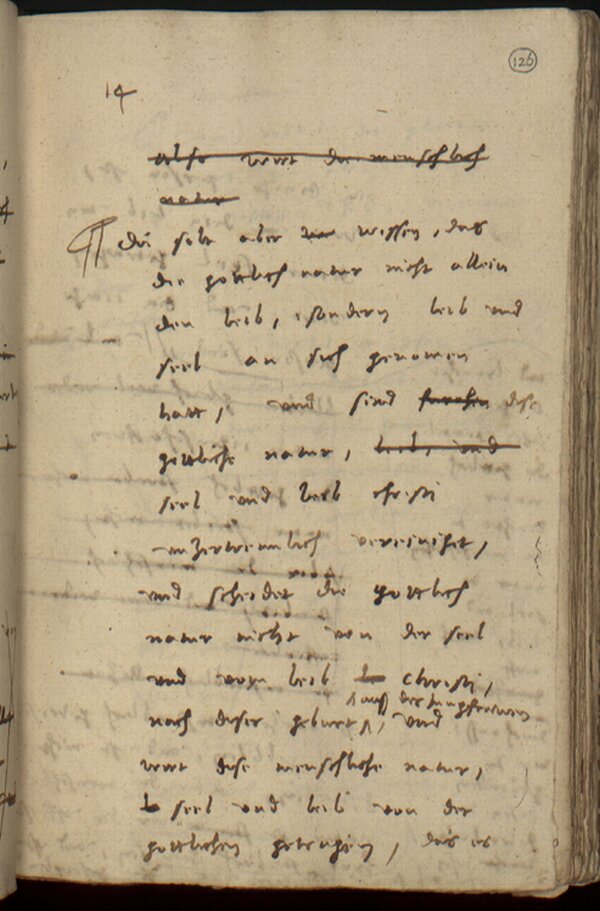 126
14
Also wirt die menschlich
natur
Du solt aber wissen, das
die gottlich natur nicht allein
den leib, sondern leib und
seel an sich genomen
hatt, und sind dise
gottliche natur, leib, und
seel und leib christi
unzertrennlich vereinigt,
und scheidet die gottlich
natur nicht von der seel
und vom leib Christi,
auß der Jungfrawen
nach diser geburt, und
wirt dise menschliche natur,
seel und leib von der
gottlichen getragen, das es